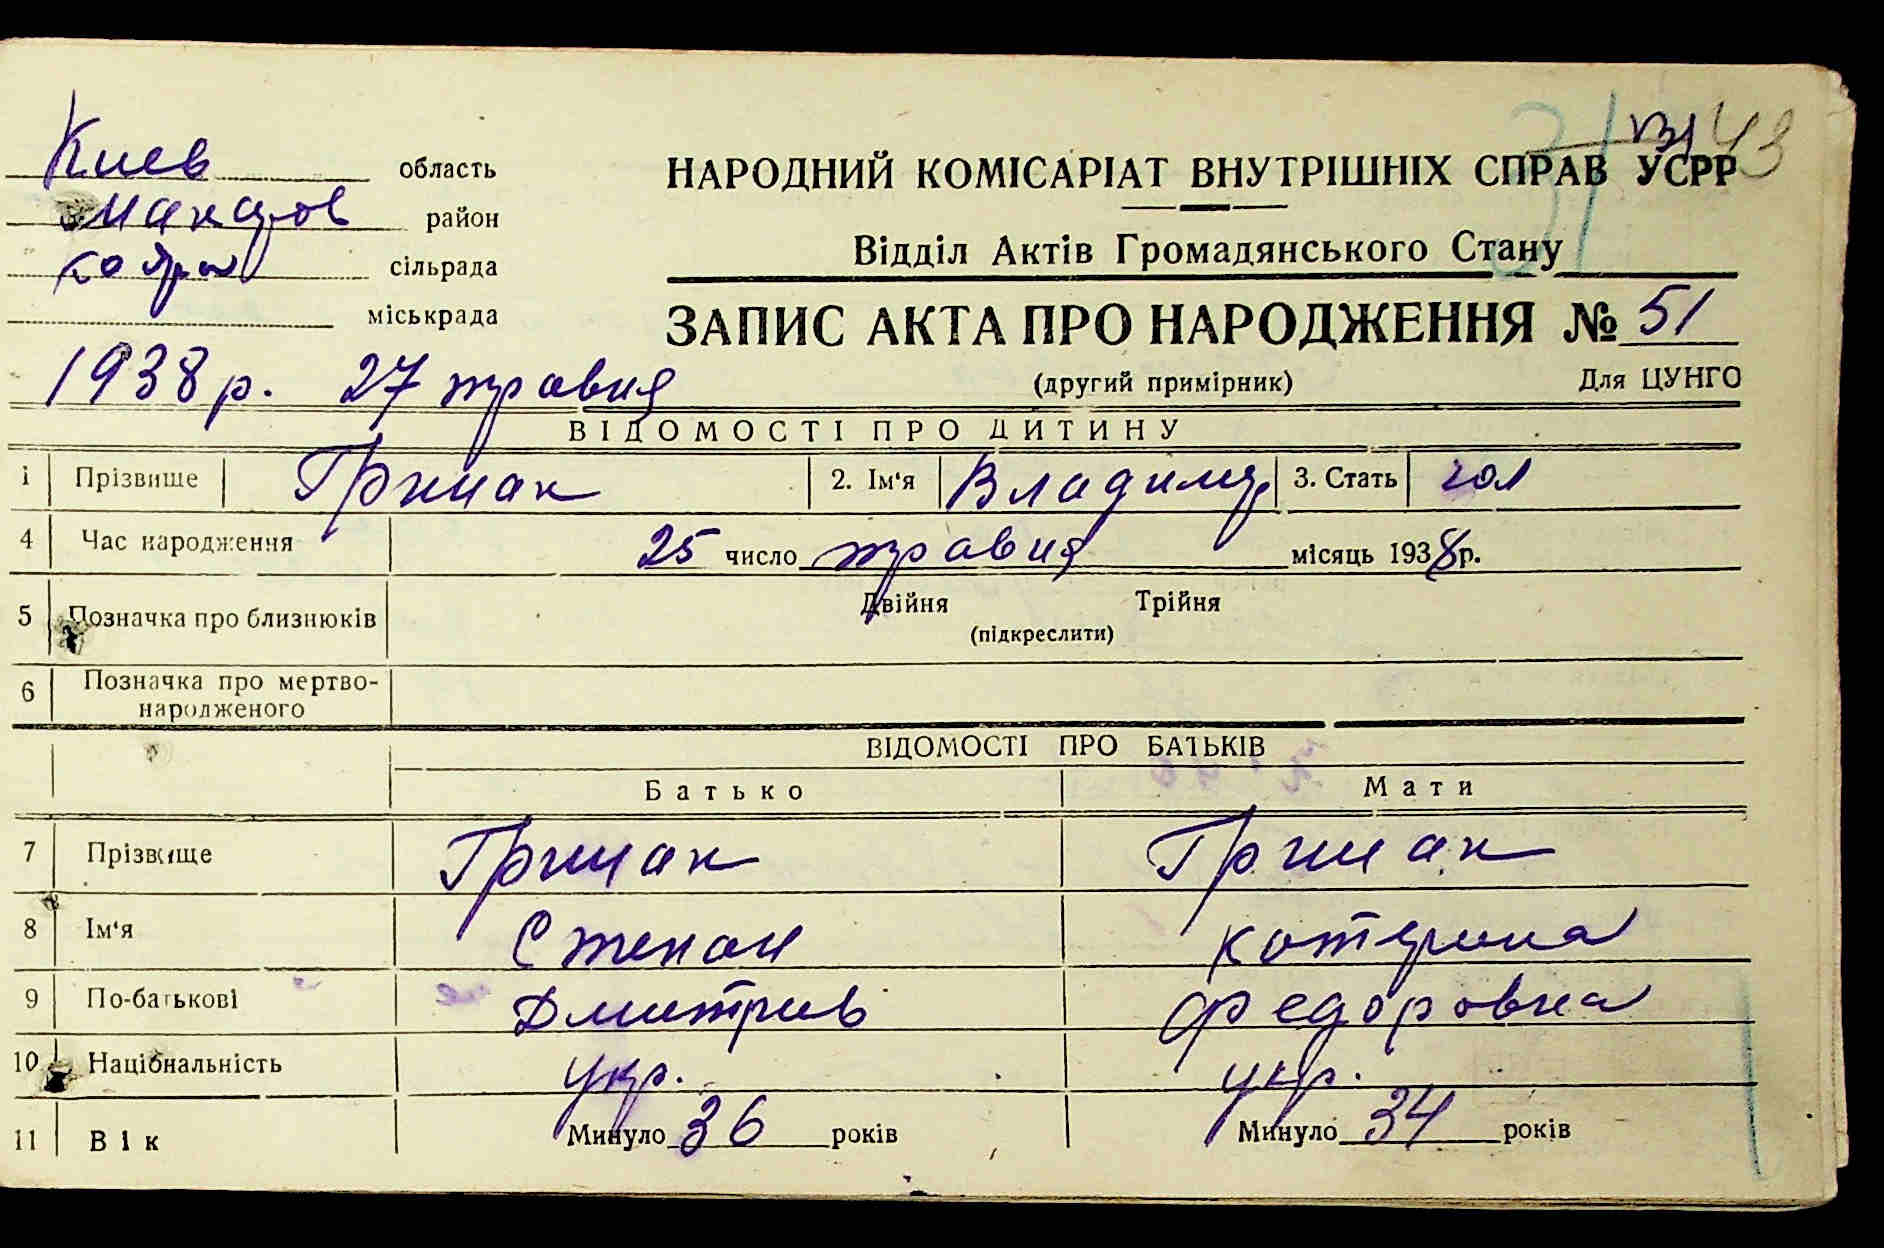 31 43
Киев область
Макаров район
сільрада
міськрада
НАРОДНИЙ КОМІСАРІАТ ВНУТРІШНІХ СПРАВ УСРР
Відділ Актів Громадянського Стану
ЗАПИС АКТА ПРО НАРОДЖЕННЯ № 51
1938 р. 27 травня (другий примірник) Для ЦУНГО
ВІДОМОСТІ ПРО ДИТИНУ
1 Прізвище Гримак 2. Ім'я Владимир 3. Стать чол
4 Час народження 25 число травня місяць 1938 р.
5 Позначка про близнюків Двійня Трійня
(підкреслити)
6 Позначка про мертво-
народженого
ВІДОМОСТІ ПРО БАТЬКІВ
Батько Мати
7 Прізвище Гримак Гримак
8 Ім'я Степан Катерина
9 По-батькові Дмитрив Федоровна
10 Національність укр. укр.
11 Вік Минуло 36 років Минуло 34 років